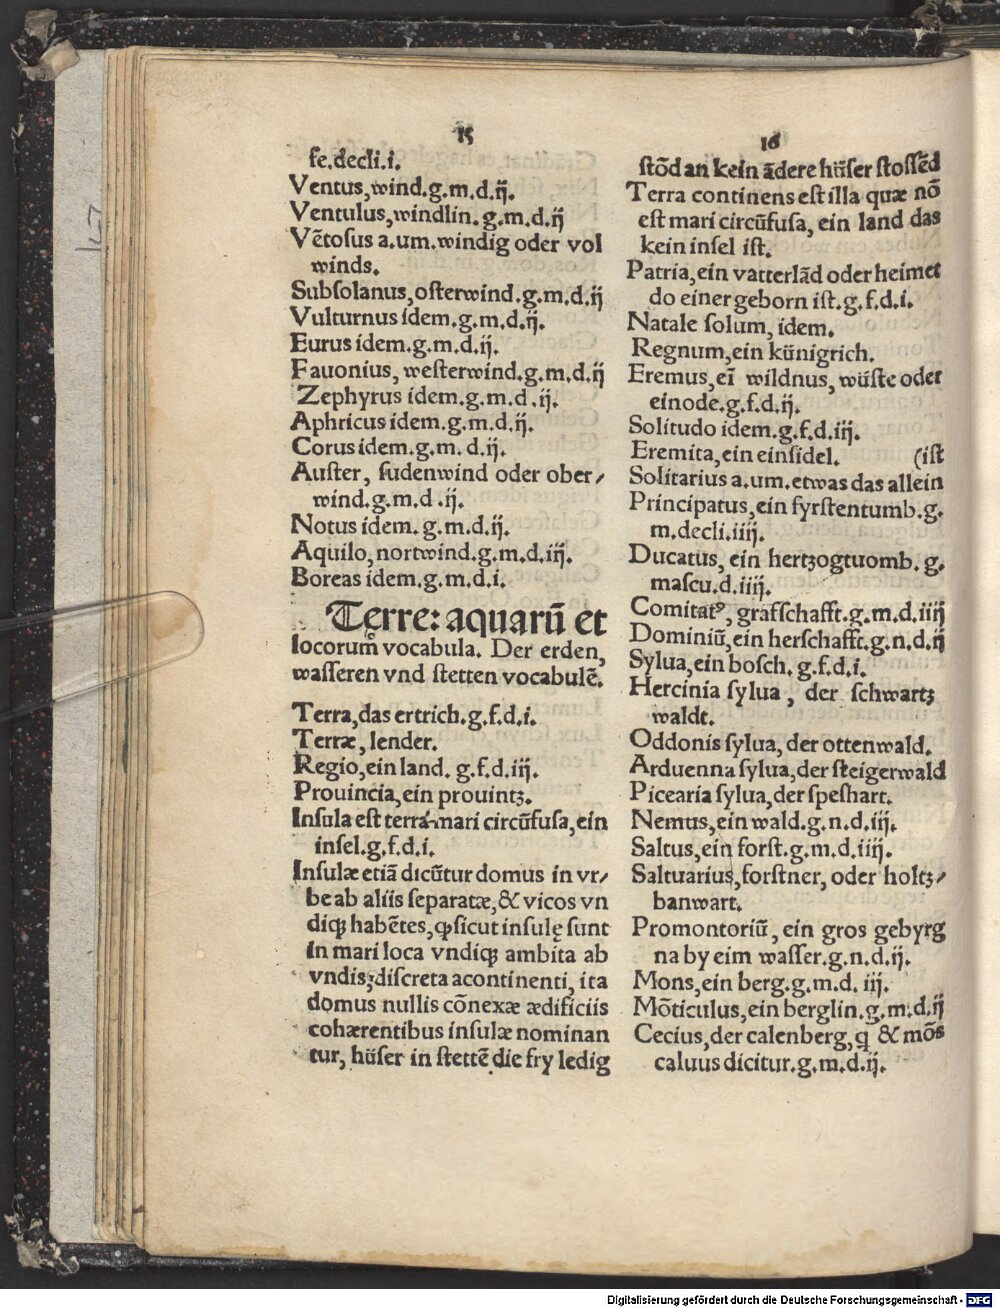 15
fe.decli.i.
Ventus,wind.g.m.d.ij.
Ventulus,windlin.g.m.d.ij
Vẽtosus a.um.windig oder vol
winds.
Subsolanus,osterwind.g.m.d.ij
Vulturnus idem.g.m.d.ij.
Eurus idem.g.m.d.ij.
Fauonius, westerwind.g.m.d.ij
Zephyrus idem.g.m.d.ij.
Aphricus idem.g.m.d.ij.
Corus idem.g.m.d.ij.
Auster, sudenwind oder ober⸗
wind.g.m.d.ij.
Notus idem.g.m.d.ij.
Aquilo,nortwind.g.m.d.iij.
Boreas idem.g.m.d.i.
Terre: aquarũ et
locorum vocabula. Der erden,
wasseren vnd stetten vocabulẽ.
Terra,das ertrich.g.f.d.i.
Terræ,lender.
Regio,ein land. g.f.d.iij.
Prouincia,ein prouintz.
Insula est terra mari circũfusa,ein
insel.g.f.d.i.
Insulæ etiã dicũtur domus in vr⸗
be ab aliis separatæ,& vicos vn
diqꝫ habẽtes,ꝙ sicut insulę sunt
in mari loca vndiqꝫ ambita ab
vndisꝫ discreta a continenti, ita
domus nullis cõnexæ ædificiis
cohærentibus insulæ nominan
tur, hüser in stettẽ die fry ledig
16
stõd an kein ãdere hüser stossẽd
Terra continens est illa quæ nõ
est mari circũfusa, ein land das
kein insel ist.
Patria,ein vatterlãd oder heimet
do einer geborn ist.g.f.d.i.
Natale solum, idem.
Regnum,ein künigrich.
Eremus,eĩ wildnus, wüste oder
einode.g.f.d.ij.
Solitudo idem.g.f.d.iij.
Eremita,ein einsidel. (ist
Solitarius a.um.etwas das allein
Principatus,ein fyrstentumb.g.
m.decli.iiij.
Ducatus, ein hertzogtuomb. g.
mascu.d.iiij.
Comitatꝰ, grafschafft.g.m.d.iiij
Dominiũ,ein herschafft.g.n.d.ij
Sylua,ein bosch. g.f.d.i.
Hercinia sylua, der schwartz
waldt.
Oddonis sylua, der ottenwald.
Arduenna sylua,der steigerwald
Picearia sylua,der speshart.
Nemus,ein wald.g.n.d.iij.
Saltus,ein forst.g.m.d.iiij.
Saltuarius,forstner, oder holtz⸗
banwart.
Promontoriũ, ein gros gebyrg
na by eim wasser.g.n.d.ij.
Mons,ein berg.g.m.d. iij.
Mõticulus,ein berglin.g.m.d.ij
Cecius,der calenberg,q & mõs
caluus dicitur.g.m.d.ij.
Digitalisierung gefördert durch die Deutsche Forschungsgemeinschaft - DFG